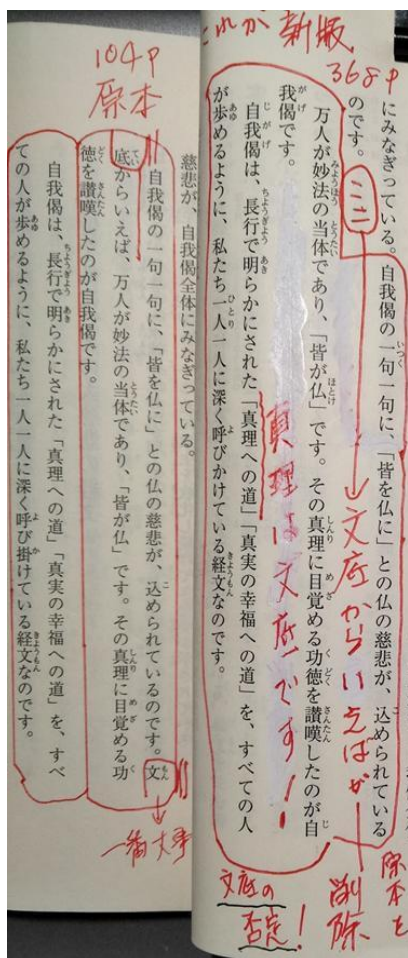 これが新版
368P
にみなぎっている。自我偈の一句一句に、「皆を仏に」との仏の慈悲が、込められている
のです。
ミニ
万人が妙法の当体であり、「皆が仏」です。その真理に目覚める功徳を讃嘆したのが自
我偈です。
自我偈は、長行で明らかにされた「真理への道」「真実の幸福への道」を、すべての人
が歩めるように、私たち一人一人に深く呼びかけている経文なのです。
文底からいえばが
削除
原本を
真理は文底です!!
文底の
否定!
104P
原本
慈悲が、自我偈全体にみなぎっている。
自我偈の一句一句に、「皆を仏に」との仏の慈悲が、込められているのです。文
底からいえば、万人が妙法の当体であり、「皆が仏」です。その真理に目覚める功
徳を讃嘆したのが自我偈です。
自我偈は、長行で明らかにされた「真理への道」「真実の幸福への道」を、すべ
ての人が歩めるように、私たち一人一人に深く呼び掛けている経文なのです。
一番大事